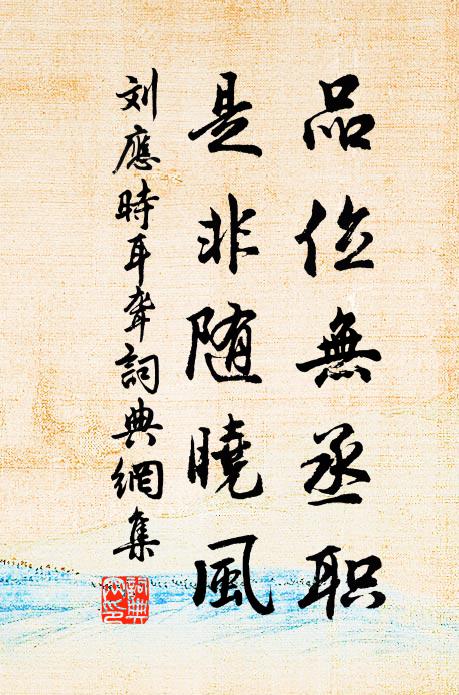 品位無丞职
是非随曉風
刘應時耳聋詞典網集